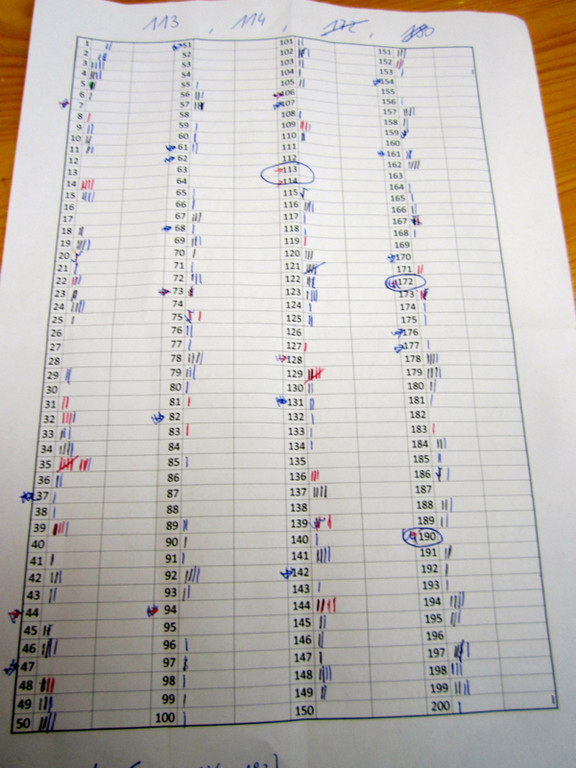 113 , 114 ,
1 51 101 151
2 52 102 152
3 53 103 153
4 54 104 154
5 55 105 155
6 56 106 156
7 57 107 157
8 58 108 158
9 59 109 159
10 60 110 160
11 61 111 161
12 62 112 162
13 63 113 163
14 64 114 164
15 65 115 165
16 66 116 166
17 67 117 167
18 68 118 168
19 69 119 169
20 70 120 170
21 71 121 171
22 72 122 172
23 73 123 173
24 74 124 174
25 75 125 175
26 76 126 176
27 77 127 177
28 78 128 178
29 79 129 179
30 80 130 180
31 81 131 181
32 82 132 182
33 83 133 183
34 84 134 184
35 85 135 185
36 86 136 186
37 87 137 187
38 88 138 188
39 89 139 189
40 90 140 190
41 91 141 191
42 92 142 192
43 93 143 193
44 94 144 194
45 95 145 195
46 96 146 196
47 97 147 197
48 98 148 198
49 99 149 199
50 100 150 200